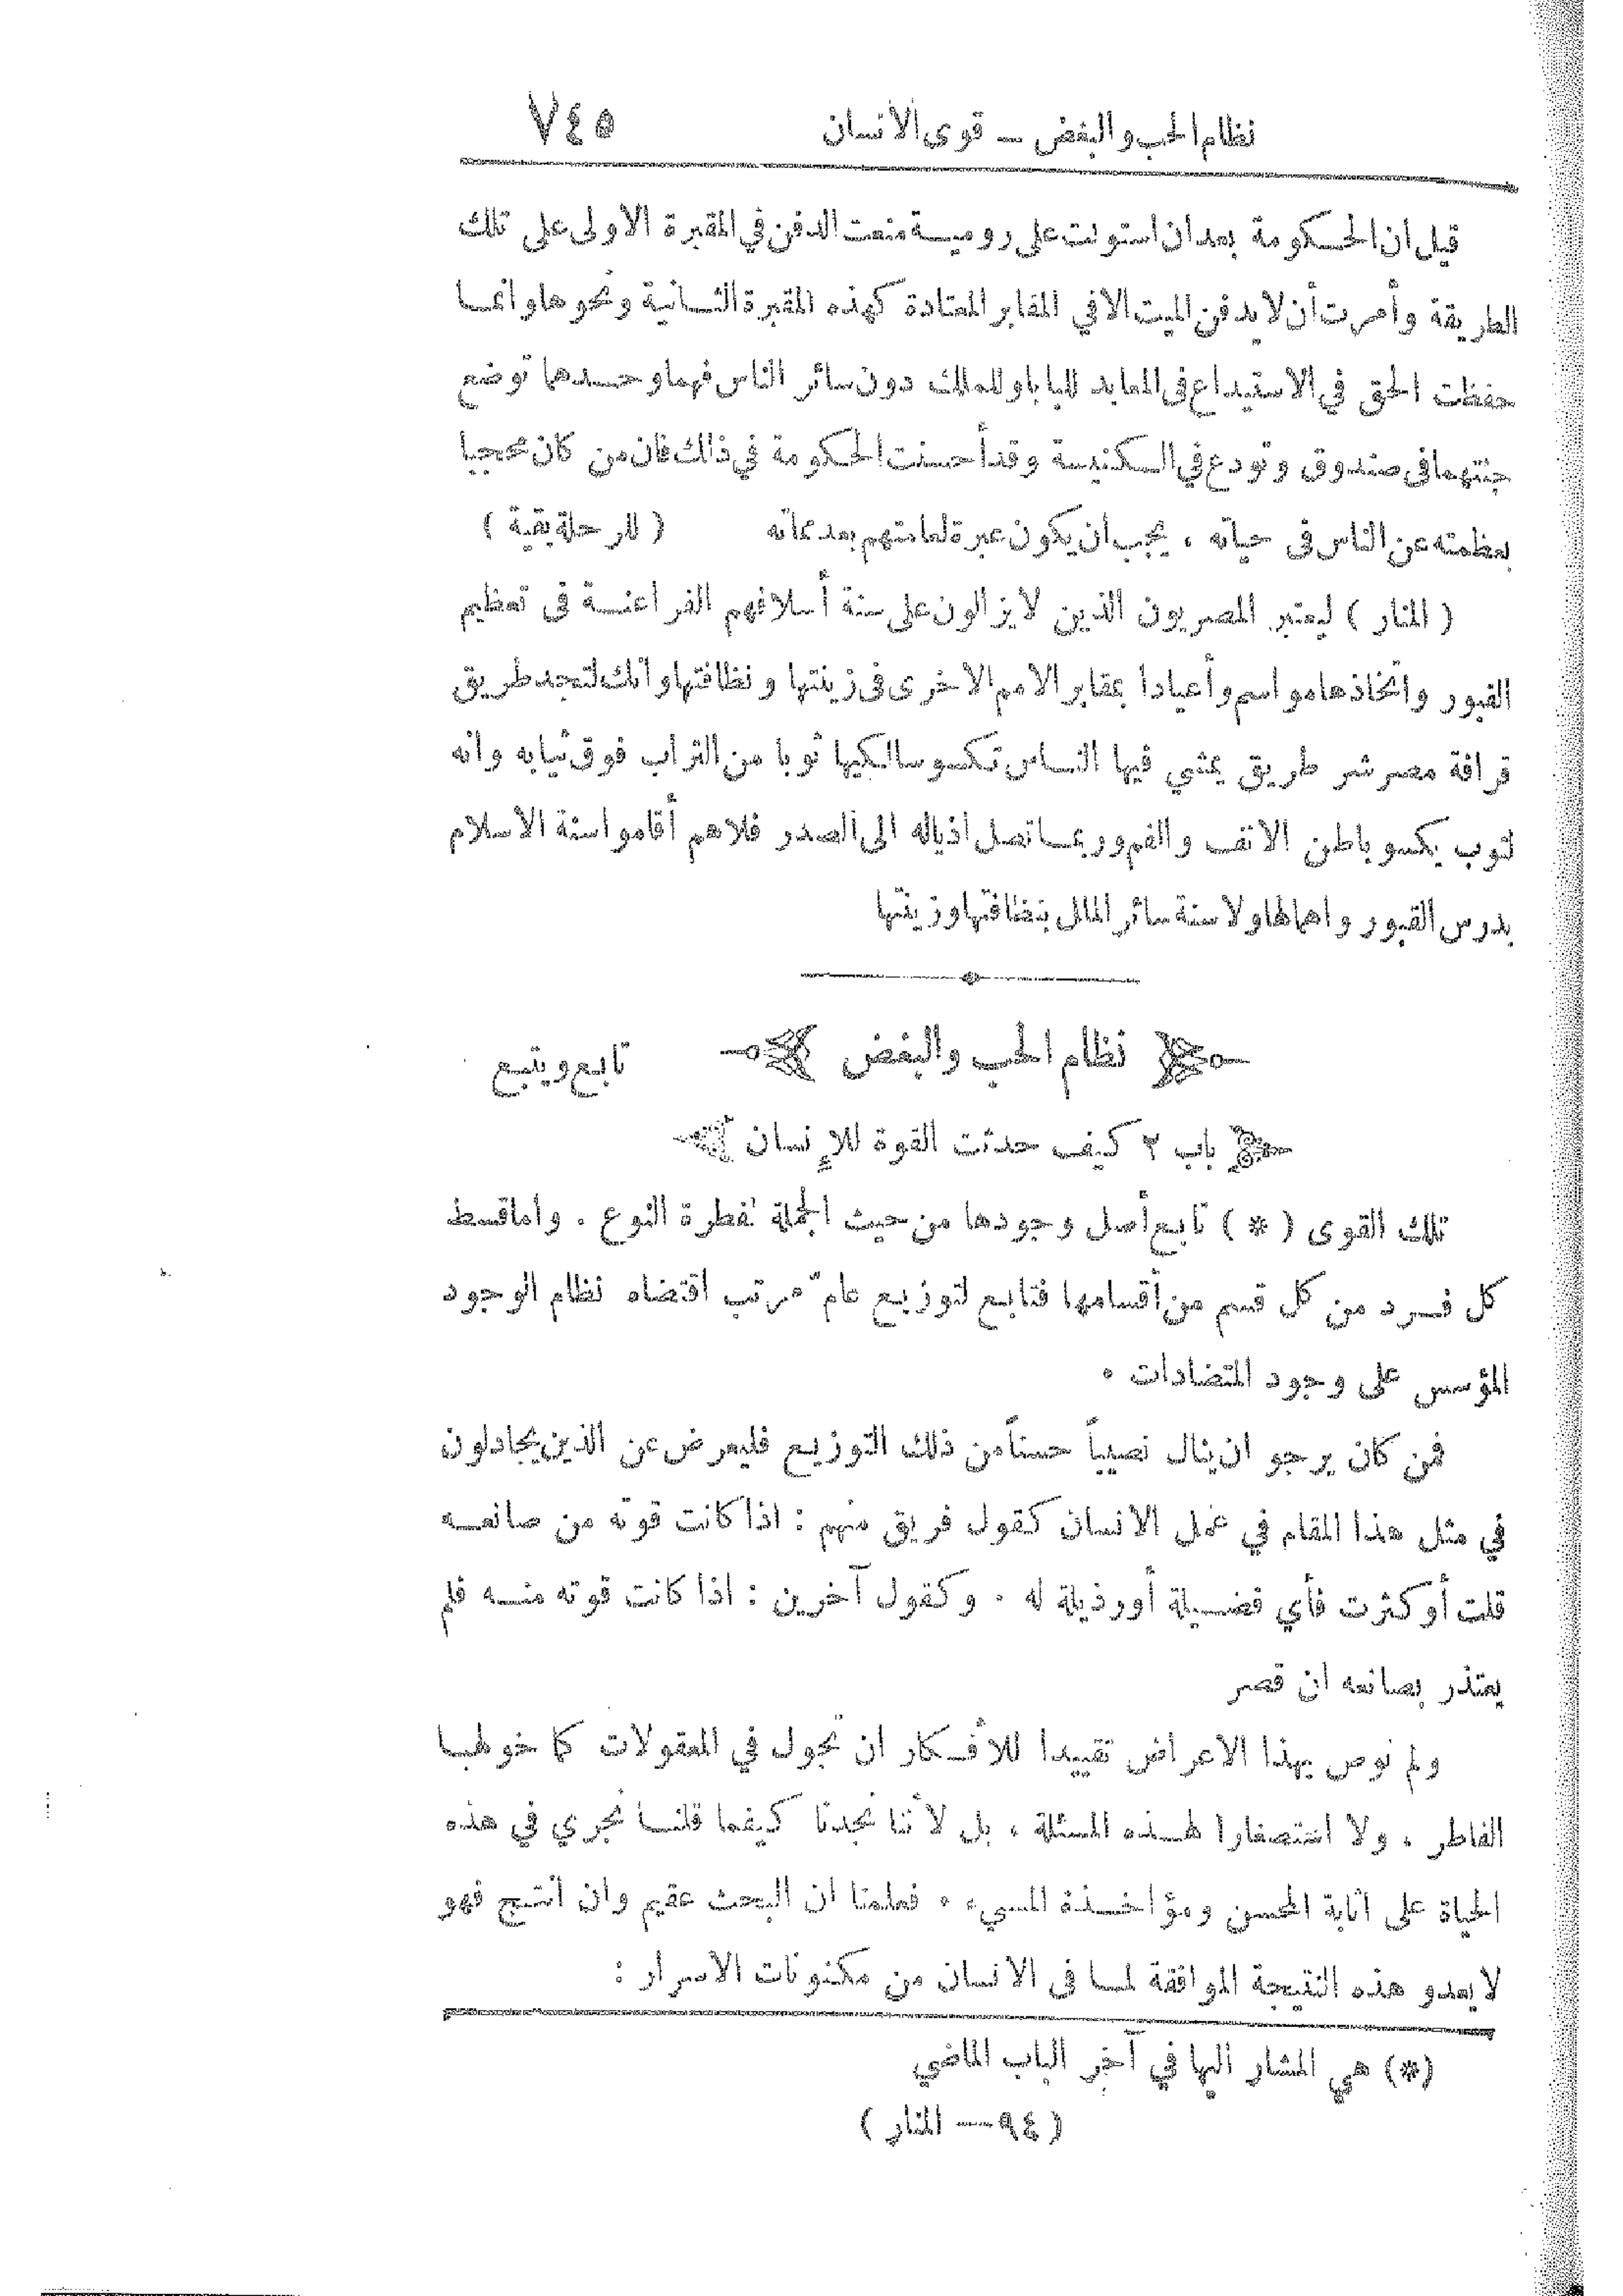 نظام الحب والبغض — قوى الانسان ٧٤٥
قيل ان الحكومة بعد ان استولت على رومية منعت الدفن في المقبرة الاولى على تلك
الطريقة وأمرت أن لا يدفن الميت الا في المقابر المعتادة كهذه المقبرة الثانية ونحوها وانما
حفظت الحق في الاستيداع في المعابد للبابا وللملك دون سائر الناس فهما وحدهما توضع
جثتهما في صندوق وتودع في الكنيسة وقد أحسنت الحكومة في ذلك فان من كان محجبا
بعظمته عن الناس في حياته ، يجب أن يكون عبرة لعامتهم بعد مماته ( للرحلة بقية )
( المنار ) ليعتبر المصريون الذين لا يزالون على سنة أسلافهم الفراعنة في تعظيم
القبور واتخاذها مواسم وأعيادا بمقابر الامم الاخرى في زينتها ونظافتها وانك لتجد طريق
قرافة مصر شر طريق يمشي فيها الناس تكسو سالكيها ثوبا من التراب فوق ثيابه وانه
لثوب يكسو باطن الانف والفم وربما تصل اذياله الى الصدر فلا هم أقاموا سنة الاسلام
بدرس القبور واهمالها ولا سنة سائر الملل بنظافتها وزينتها
نظام الحب والبغض تابع ويتبع
باب ٢ كيف حدثت القوة للإنسان
تلك القوى ( * ) تابع أصل وجودها من حيث الجملة لفطرة النوع . واما قسط
كل فرد من كل قسم من أقسامها فتابع لتوزيع عام مرتب اقتضاه نظام الوجود
المؤسس على وجود المتضادات .
فمن كان يرجو ان ينال نصيباً حسناً من ذلك التوزيع فليعرض عن الذين يجادلون
في مثل هذا المقام في عمل الانسان كقول فريق منهم : اذا كانت قوته من صانعه
قلت أو كثرت فأي فضيلة أو رذيلة له . وكقول آخرين : اذا كانت قوته منه فلم
يعتذر بصانعه ان قصر
ولم نوص بهذا الاعراض تقييدا للأفكار ان تجول في المعقولات كما خولها
الفاطر ، ولا استصغارا لهذه المسئلة ، بل لأننا نجدنا كيفما قلنا نجري في هذه
الحياة على اثابة المحسن ومؤاخذة المسيء . فعلمنا ان البحث عقيم وان انتج فهو
لا يعدو هذه النتيجة الموافقة لما في الانسان من مكنونات الاسرار :
(*) هي المشار اليها في آخر الباب الماضي
( ٩٤ — المنار )